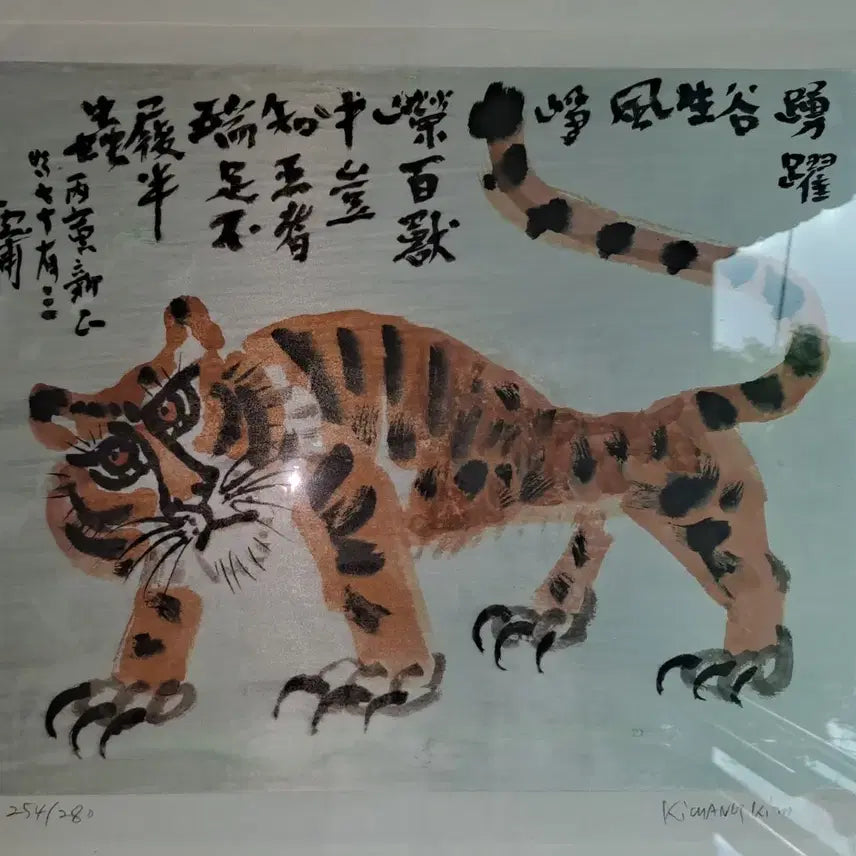 踴躍
谷
生
風
崢
嶸百獸
中豈
知惡者
瑞足不
履半
蟲
丙寅新正
時七十有三
雲甫
254/280
Kichang Kim